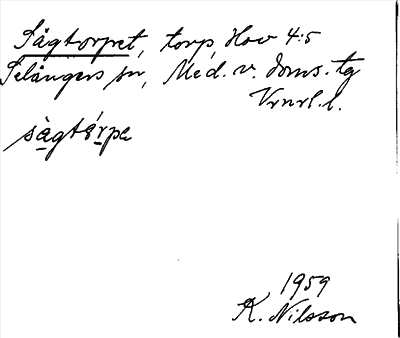 Sågtorpet, torp, Hov 4:5
Selångers sn, Med. v. doms. tg
Vrnrl. l.
sàgtårpe
1959
K. Nilsson